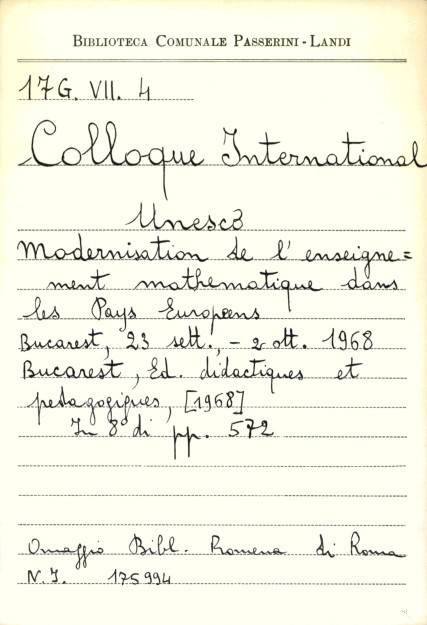 BIBLIOTECA COMUNALE PASSERINI - LANDI
17G. VII. 4
Colloque International
Unesco
Modernisation de l'enseigne=
ment mathematique dans
les Pays Européens
Bucarest, 23 sett., - 2 ott. 1968
Bucarest, Ed. didactiques et
pedagogiques, [1968]
In 8° di pp. 572
Omaggio Bibl. Romena di Roma
N.I. 175994